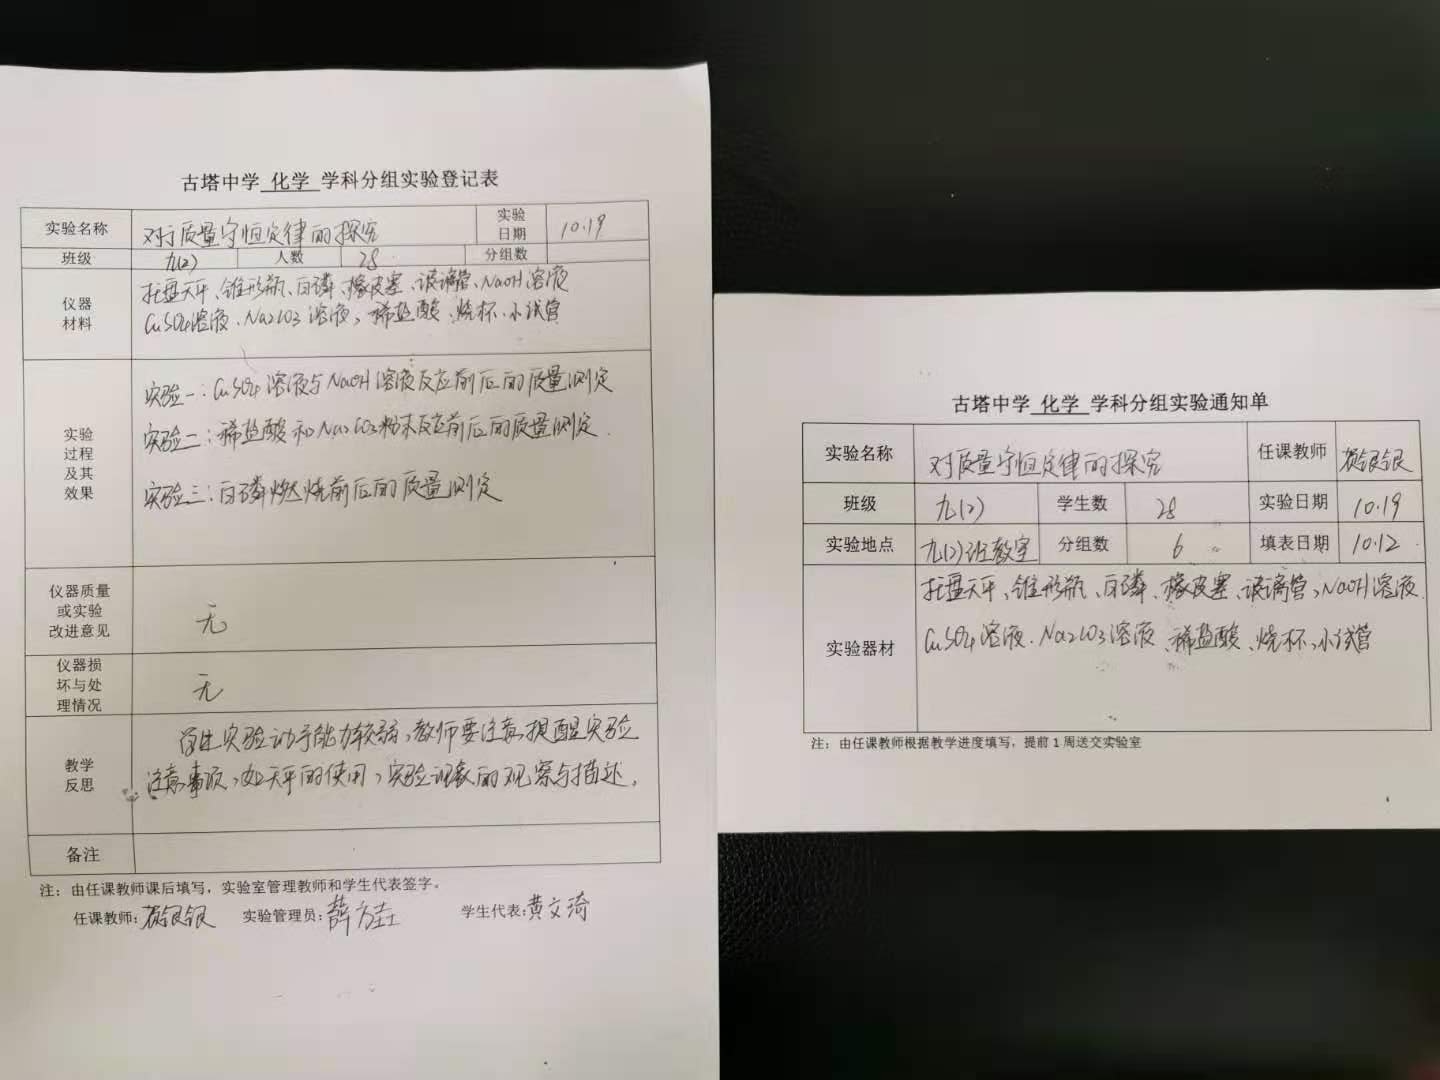 古塔中学 化学 学科分组实验登记表
实验名称 对于质量守恒定律的探究 实验日期 10.19
班级 九(2) 人数 28 分组数
仪器材料
托盘天平、锥形瓶、白磷、橡皮塞、玻璃管、NaOH溶液
CuSO4溶液、Na2CO3溶液、稀盐酸、烧杯、小试管
实验过程及其效果
实验一:CuSO4溶液与NaOH溶液反应前后的质量测定
实验二:稀盐酸和Na2CO3粉末反应前后的质量测定.
实验三:白磷燃烧前后的质量测定
仪器质量或实验改进意见 无
仪器损坏与处理情况 无
教学反思
学生实验动手能力较弱,教师要注意提醒实验
注意事项,如天平的使用,实验现象的观察与描述.
备注
注:由任课教师课后填写,实验室管理教师和学生代表签字。
任课教师: 银银 实验管理员:薛 学生代表:黄文琦
古塔中学 化学 学科分组实验通知单
实验名称 对质量守恒定律的探究 任课教师 银银
班级 九(2) 学生数 28 实验日期 10.19
实验地点 九(2)班教室 分组数 6 填表日期 10.12
实验器材
托盘天平、锥形瓶、白磷、橡皮塞、玻璃管、NaOH溶液.
CuSO4溶液.Na2CO3溶液、稀盐酸、烧杯、小试管
注:由任课教师根据教学进度填写,提前1周送交实验室